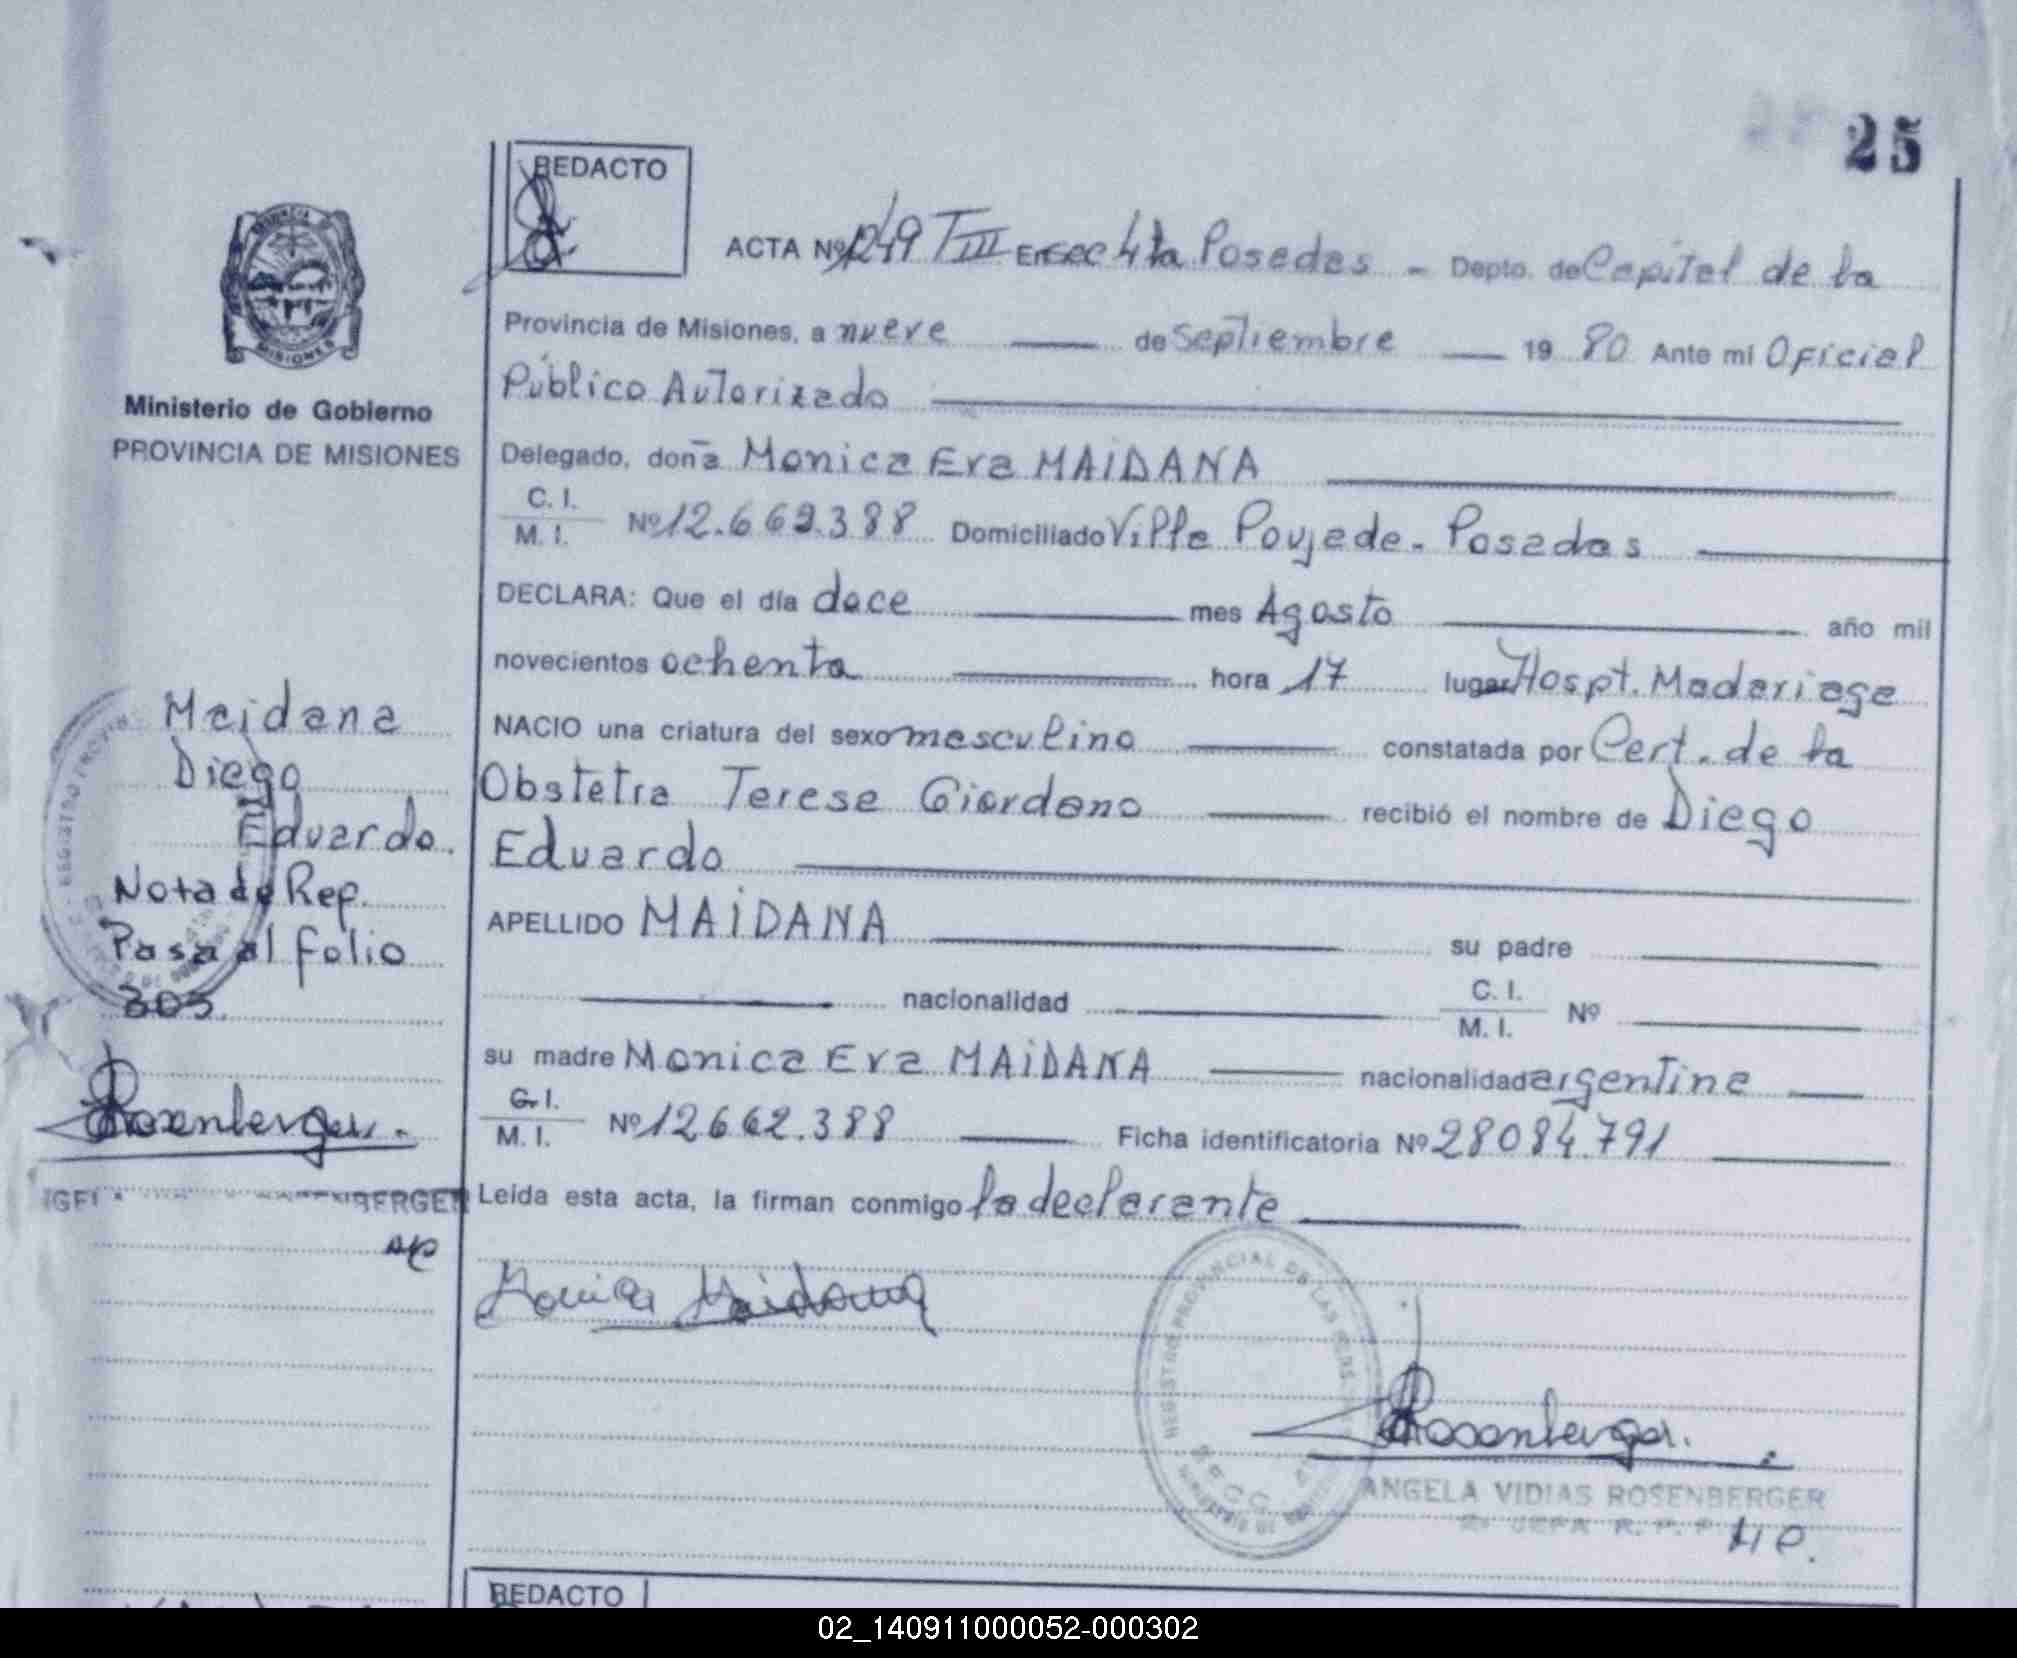 25
REDACTO
ACTA Nº 1249 TIII En sec 4ta Posadas - Depto. de Capital de la
Provincia de Misiones, a nueve de Septiembre 19 80 Ante mi Oficial
Público Autorizado
Delegado, doña Monica Eva MAIDANA
C. I.
M. I. Nº 12.662.388 Domiciliado Villa Poujade. Posadas
DECLARA: Que el día doce mes Agosto año mil
novecientos ochenta hora 17 lugar Hospt. Madariaga
NACIO una criatura del sexo masculino constatada por Cert. de la
Obstetra Teresa Giordano recibió el nombre de Diego
Eduardo
APELLIDO MAIDANA su padre
nacionalidad C. I.
M. I. Nº
su madre Monica Eva MAIDANA nacionalidad argentina
C. I.
M. I. Nº 12662.388 Ficha identificatoria Nº 28084.791
Leída esta acta, la firman conmigo la declarante
Monica Maidana
REGISTRO PROVINCIAL DE LAS
Rosenberger.
ANGELA VIDIAS ROSENBERGER
REDACTO
MISIONES
Ministerio de Gobierno
PROVINCIA DE MISIONES
Maidana
Diego
Eduardo.
Nota de Rep.
Pasa al folio
305.
Rosenberger.
BERGER
02_140911000052-000302